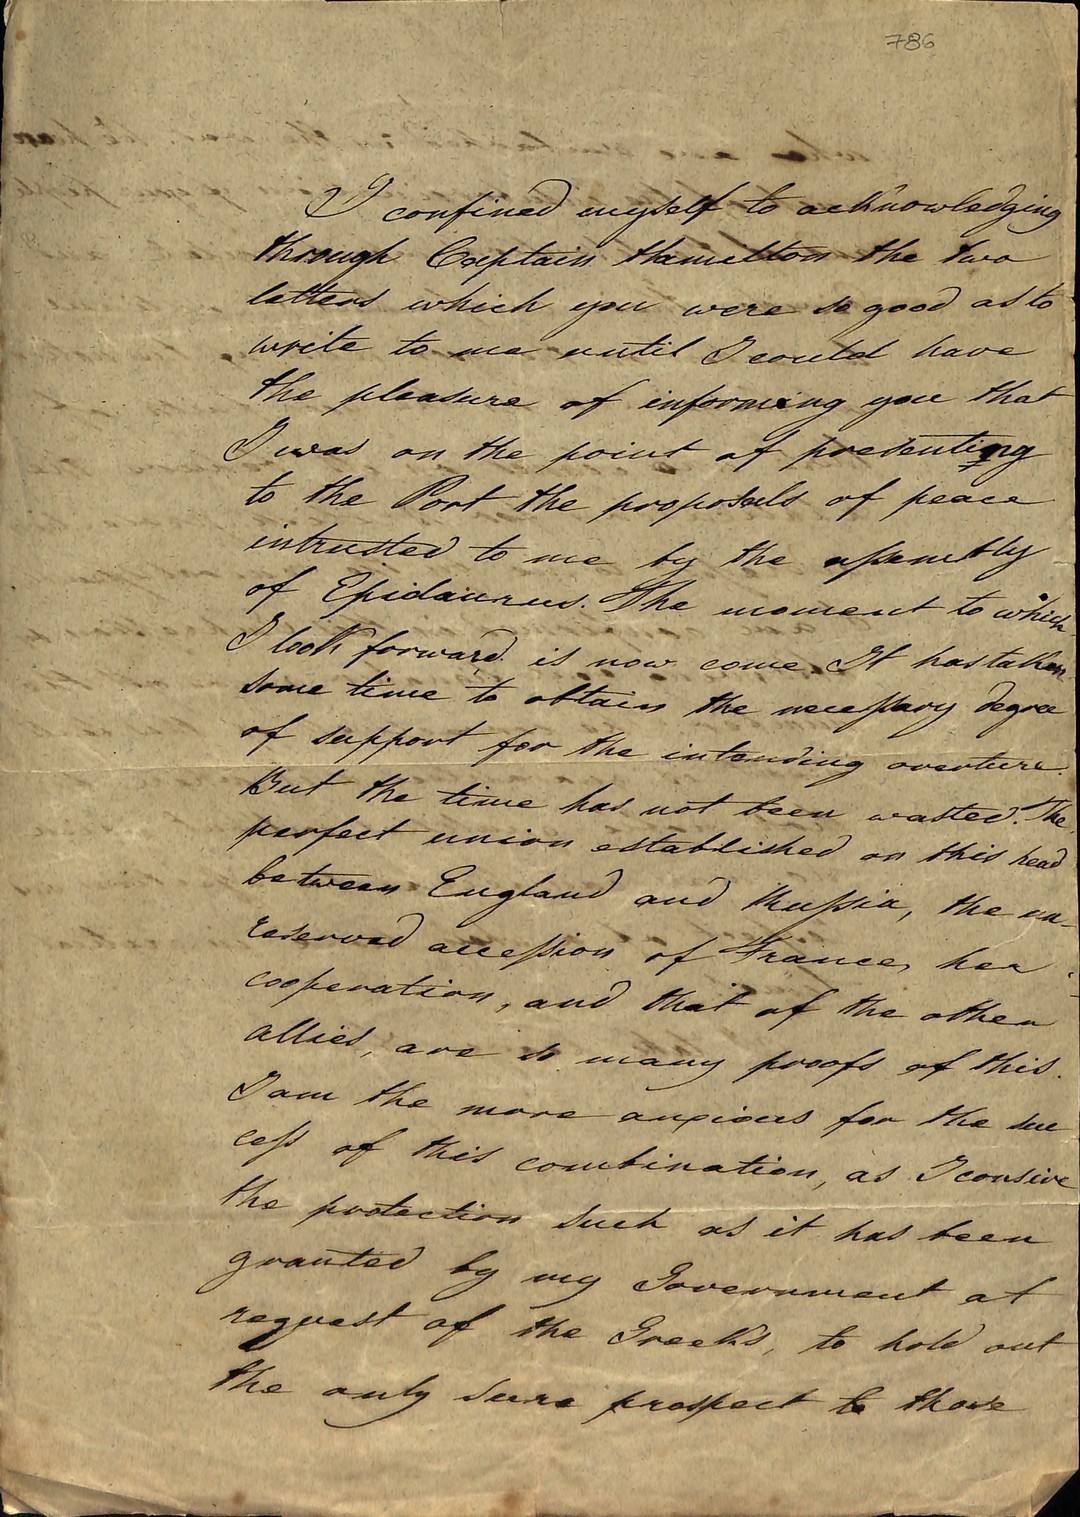 786
I confined myself to acknowledging
through Captain Hamilton the two
letters which you were so good as to
write to me until I could have
the pleasure of informing you that
I was on the point of presenting
to the Port the proposals of peace
intrusted to me by the assembly
of Epidaurus. The moment to which
I look forward is now come. It has taken
some time to obtain the necessary degree
of support for the intending overture.
But the time has not been wasted. The
perfect union established on this head
between England and Russia, the un-
reserved accession of France, her
cooperation, and that of the other
allies, are so many proofs of this.
I am the more anxious for the suc
cess of this combination, as I consive
the protection such as it has been
granted by my Government at
request of the Greeks, to hold out
the only sure prospect to those